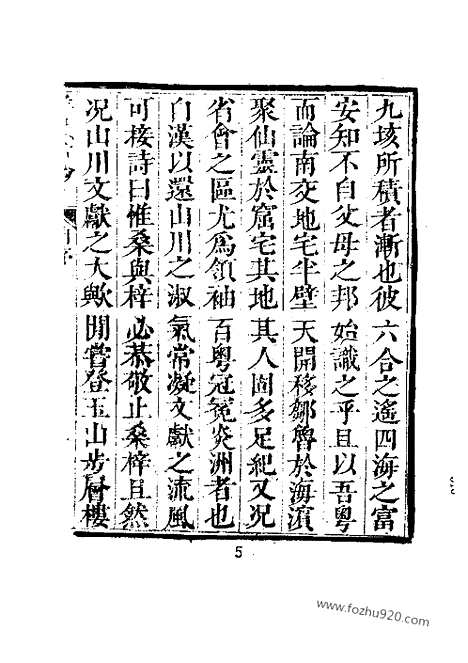 九垓所積者漸也彼六合之遙四海之富
安知不自父母之邦始識之乎且以吾粤
而論南交地宅半壁天開移鄒魯於海濱
聚仙靈於窟宅其地其人固多足紀又况
省會之區尤爲領袖百粤冠冕炎洲者也
自漢以還山川之淑氣常凝文獻之流風
可接詩曰惟桑與梓必恭敬止桑梓且然
况山川文獻之大歟閒嘗登玉山步層樓
5
www.fozhu920.com